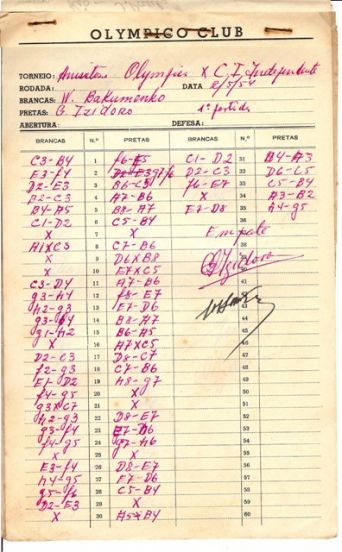 OLYMPICO CLUB
TORNEIO: Amistoso Olympico X C. I. Independente
RODADA: DATA 2/5/54
BRANCAS: W. Bakumenko
PRETAS: G. Izidoro 1ª partida
ABERTURA: DEFESA:
BRANCAS N.º PRETAS BRANCAS N.º PRETAS
C3-B4 1 C1-D2 31 B4-A3
E3-f4 2 D2-C3 32 D6-C5
D2-E3 3 B6-C5 f6-E7 33 C5-B4
B2-C3 4 A7-B6 X 34 A3-B2
B4-A5 5 B8-A7 E7-D8 35 h4-g5
C1-D2 6 C5-B4
X 7 X Empate
A1XC3 8 C7-B6
X 9 D6XB8 G Izidoro
X 10 E7XC5
C3-D4 11 A7-B6
g3-h4 12 f8-E7
h2-g3 13 E7-D6
14 B8-A7
g1-h2 15 B6-A5
X 16 A7XC5
D2-C3 17 D8-C7
f2-g3 18 C7-B6
E1-D2 19 h8-g7
f4-g5 20 X
g3XC7 21 X
h2-g3 22 D8-E7
g3-f4 23
f4-g5 24 g7-h6
X 25 X
E3-f4 26 D8-E7
h4-g5 27 E7-D6
g5-f6 28 C5-B4
D2-E3 29 X
X 30 A5XB4 60